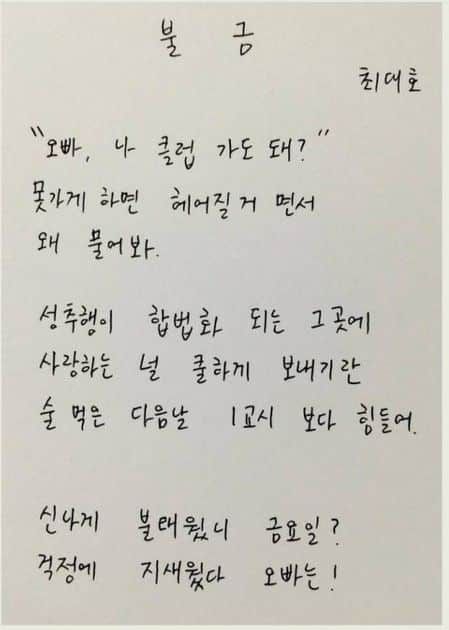 불 금
최대호
"오빠, 나 클럽 가도 돼?"
못가게 하면 헤어질거 면서
왜 물어봐.
성추행이 합법화 되는 그곳에
사랑하는 널 쿨하게 보내기란
술 먹은 다음날 1교시 보다 힘들어.
신나게 불태웠니 금요일?
걱정에 지새웠다 오빠는!